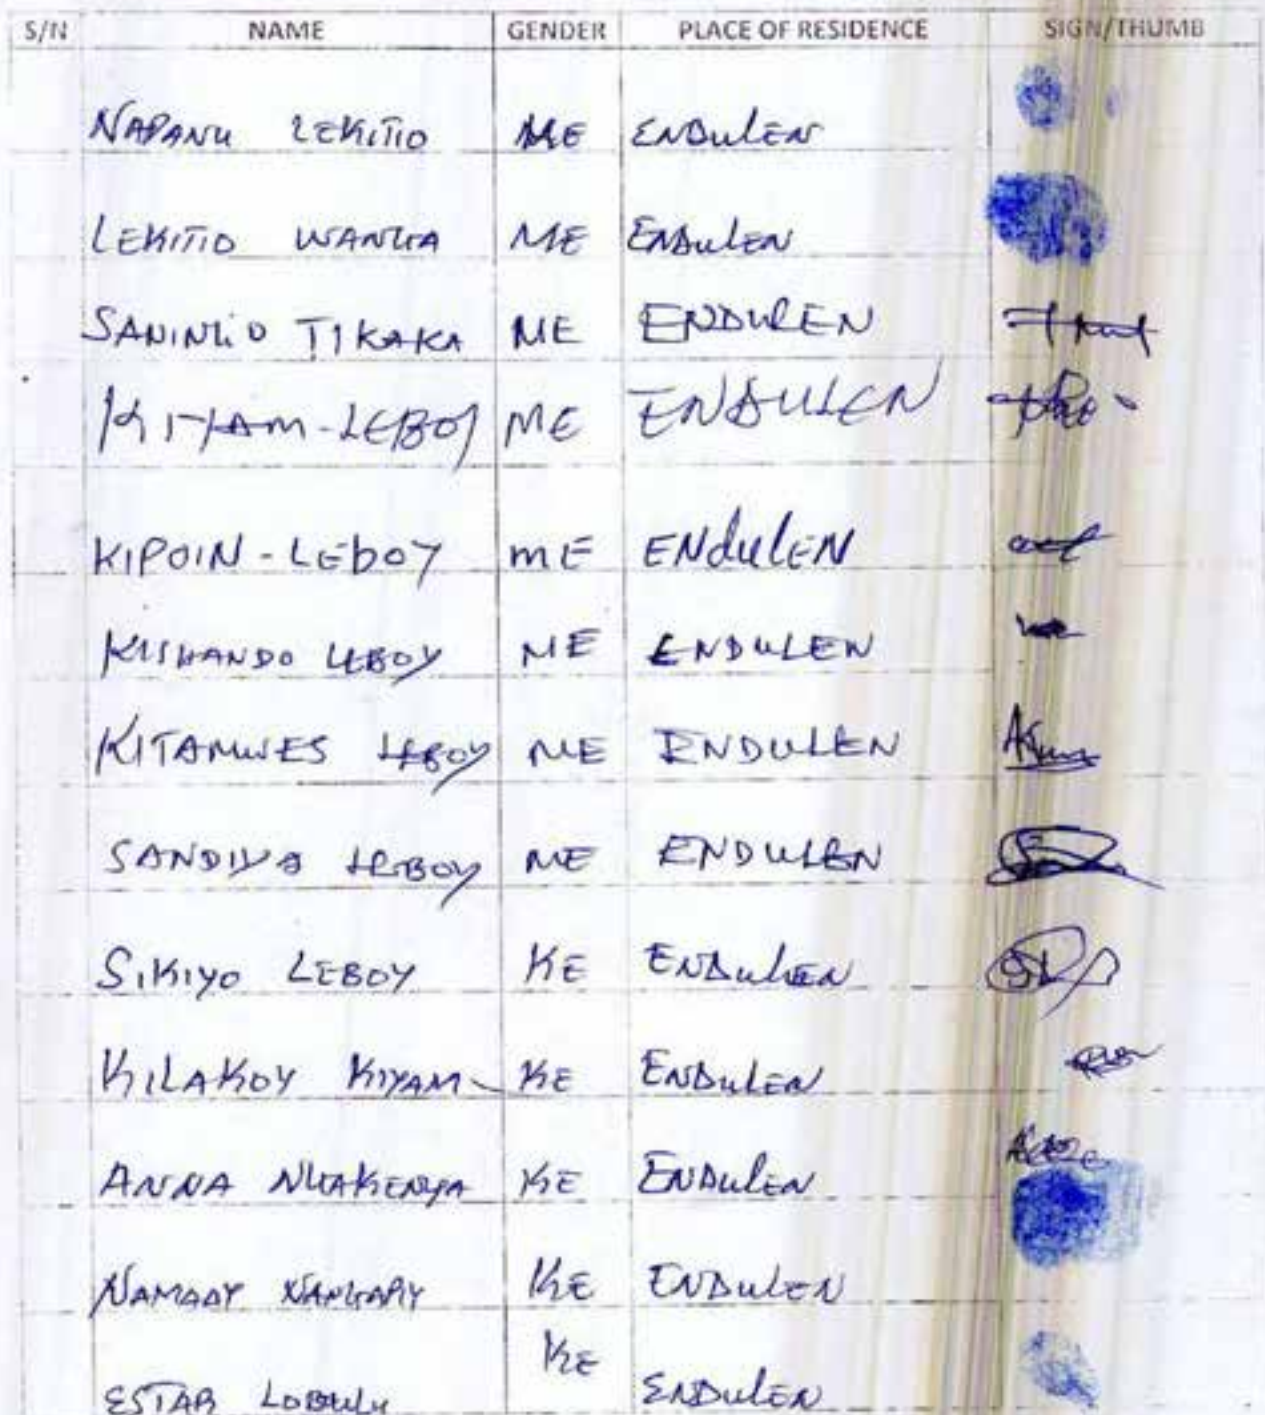 S/N NAME GENDER PLACE OF RESIDENCE SIGN/THUMB
NAPANU LEKITIO ME ENDULEN
LEKITIO WANGA ME ENDULEN
SANINGO TIKAKA ME ENDULEN
KIYAM-LEBOY ME ENDULEN
KIPOIN-LEbOY mE ENdULEN
KISHANDO LEBOY ME ENDULEN
KITAMWES LEBOY ME ENDULEN
SANDIYA LEBOY ME ENDULEN
SIKIYO LEBOY KE ENDULEN
KILAKOY KIYAM KE ENDULEN
ANNA KE ENDULEN
NAMAAY KE ENDULEN
ESTAR LOBULU KE ENDULEN